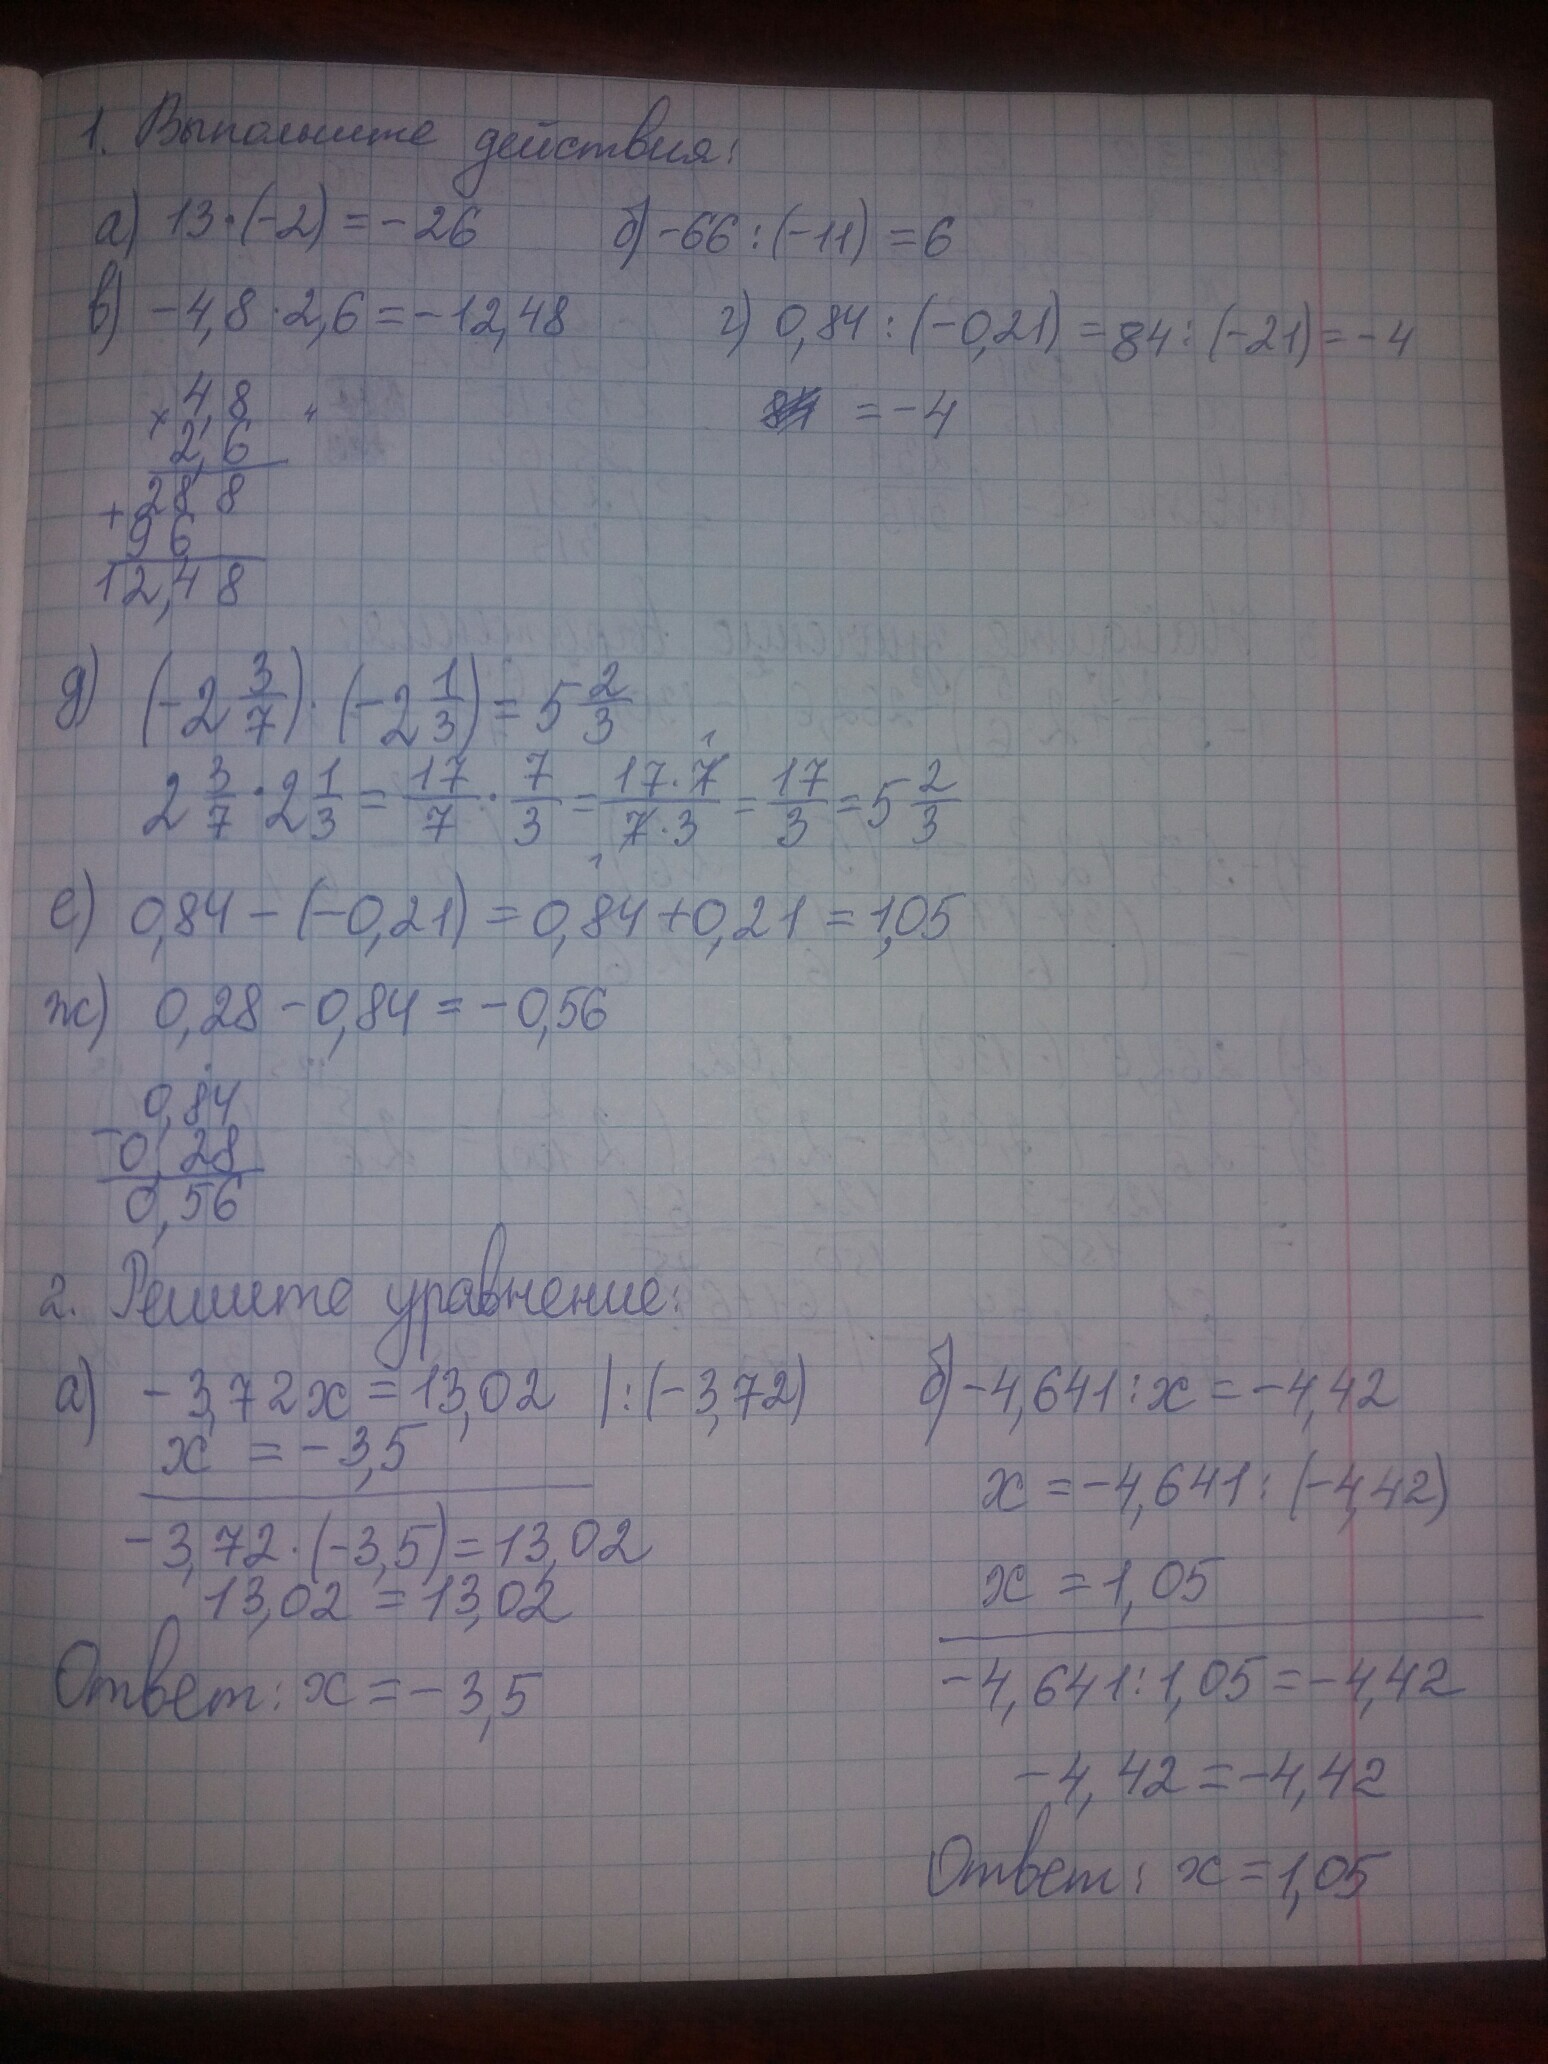 1. Выполните действия:
а) 13·(-2) = -26 б) -66:(-11) = 6
в) -4,8·2,6 = -12,48 г) 0,84:(-0,21) = 84:(-21) = -4
= -4
× 4,8
2,6
+ 288
96
12,48
д) (-2 3/7)·(-2 1/3) = 5 2/3
2 3/7 · 2 1/3 = 17/7 · 7/3 = 17·7/7·3 = 17/3 = 5 2/3
е) 0,84 - (-0,21) = 0,84 + 0,21 = 1,05
ж) 0,28 - 0,84 = -0,56
0,84
- 0,28
0,56
2. Решите уравнение:
а) -3,72x = 13,02 |:(-3,72)
x = -3,5
-3,72·(-3,5) = 13,02
13,02 = 13,02
Ответ: x = -3,5
б) -4,641:x = -4,42
x = -4,641:(-4,42)
x = 1,05
-4,641:1,05 = -4,42
-4,42 = -4,42
Ответ: x = 1,05